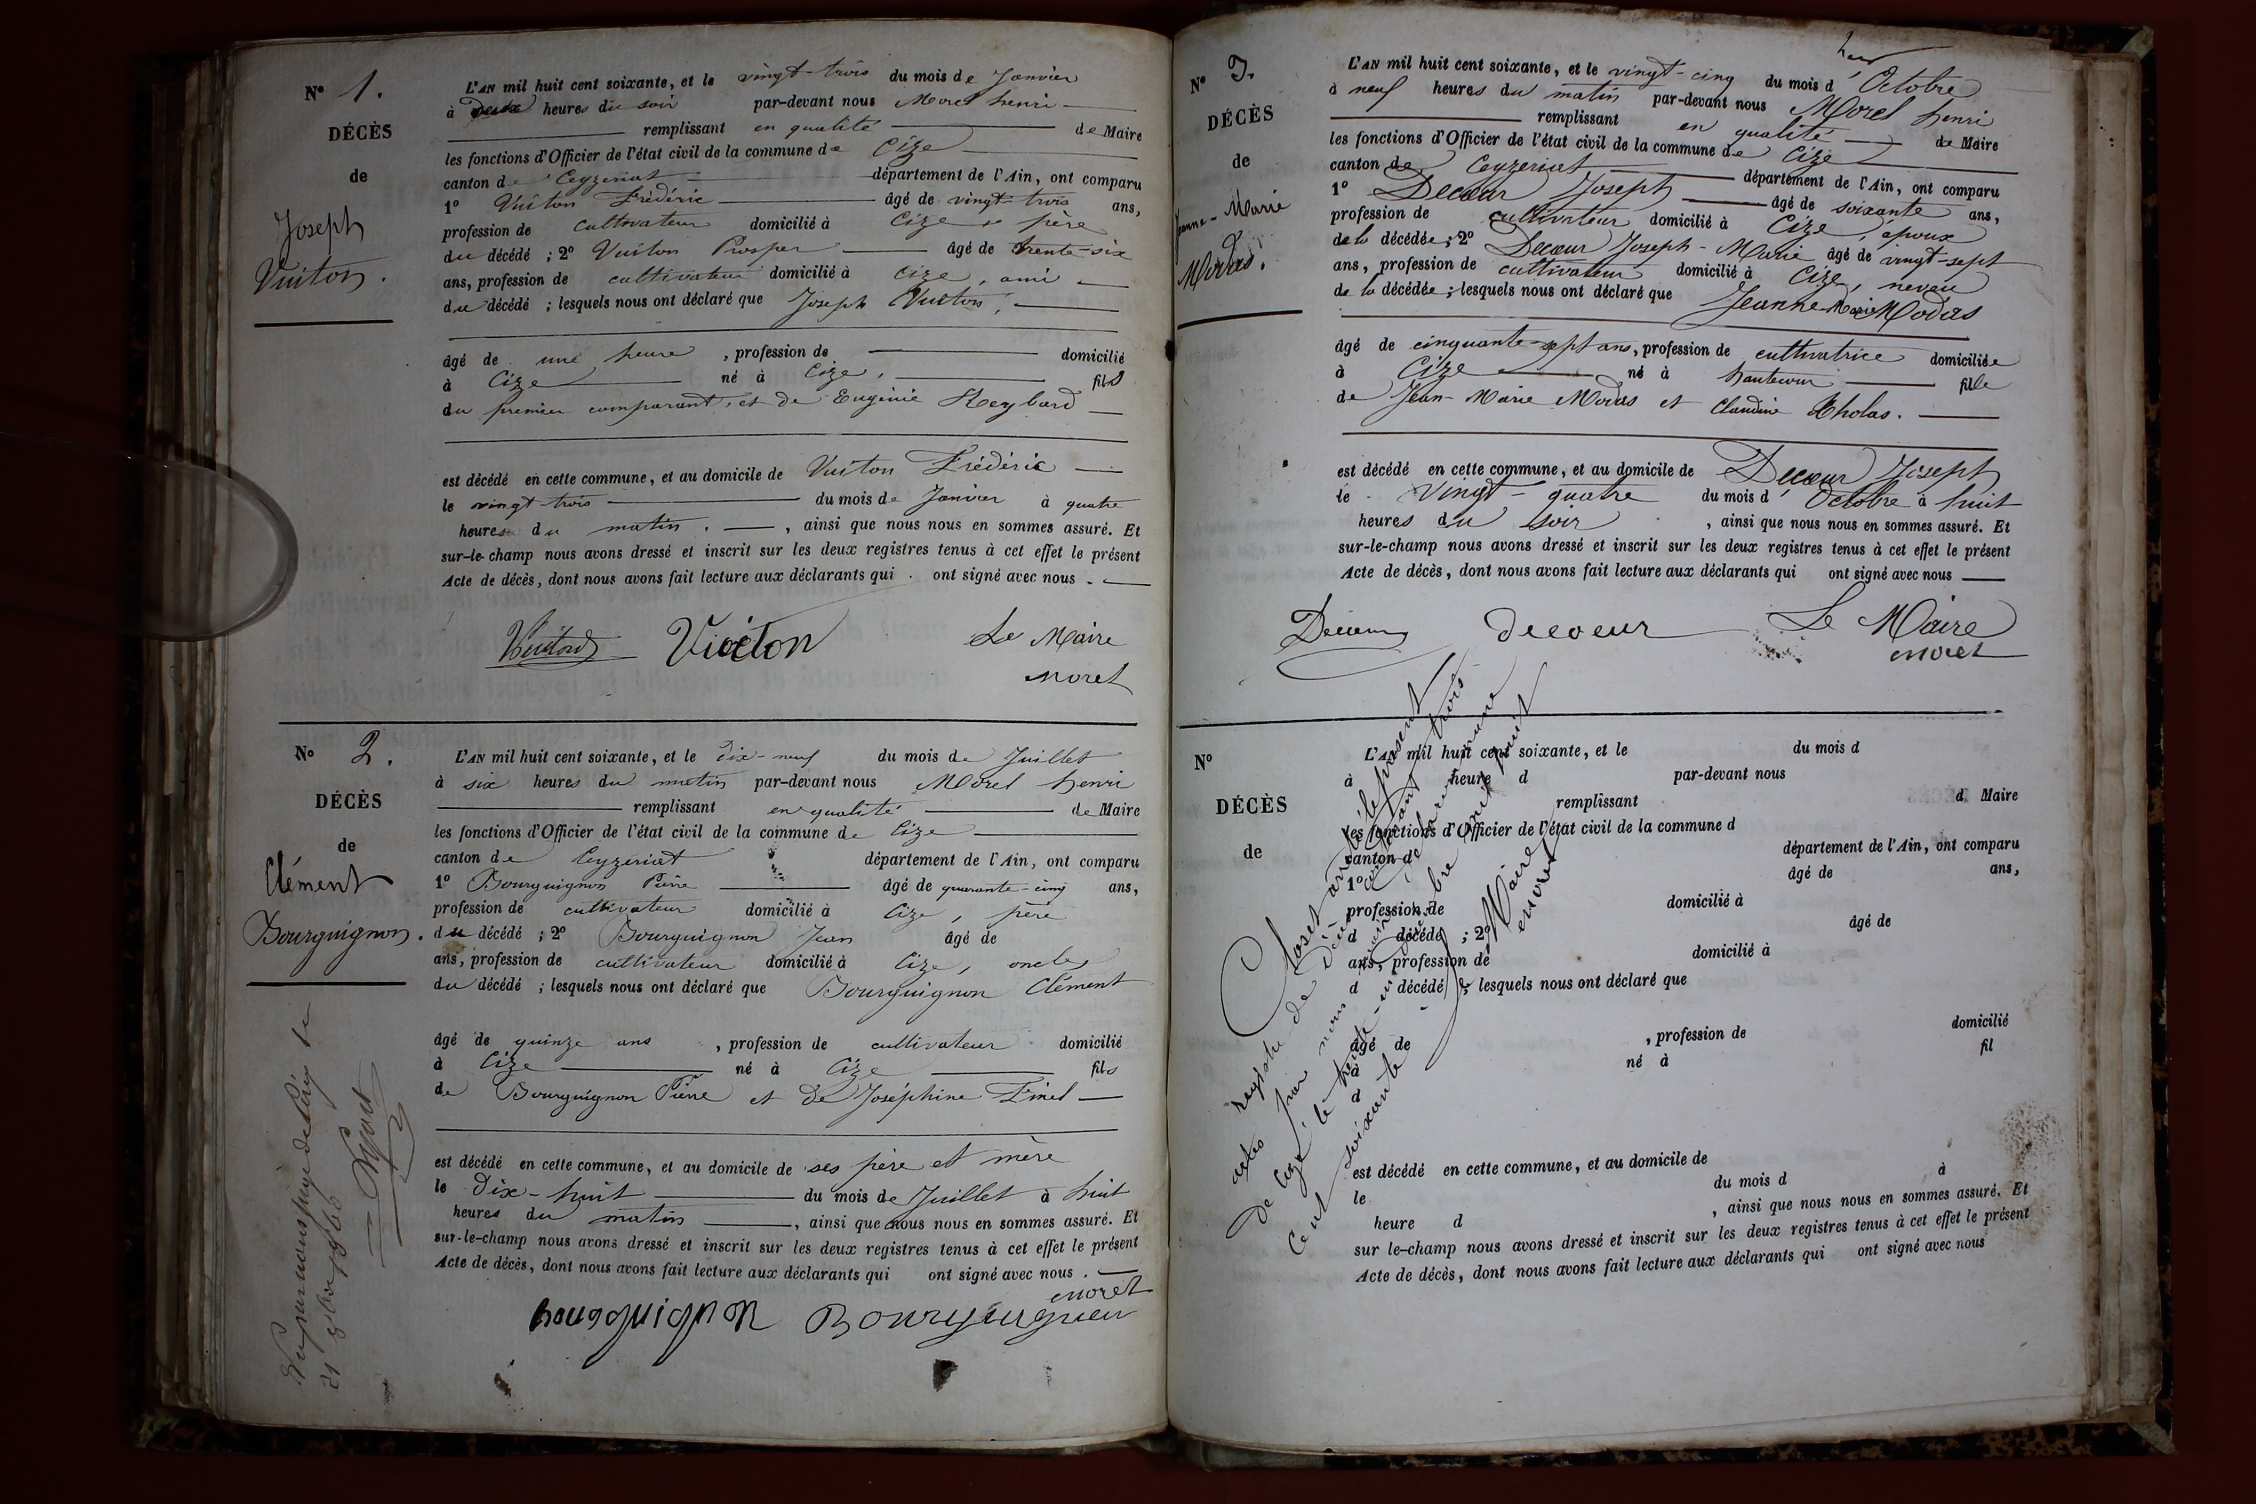 N° 1.
DÉCÈS
de
Joseph
Vuiton.
L'AN mil huit cent soixante, et le vingt-trois du mois de Janvier
à deux heures du soir par-devant nous Morel henri
remplissant en qualité de Maire
les fonctions d'Officier de l'état civil de la commune de Cize
canton de Ceyzeriat département de l'Ain, ont comparu
1° Vuiton Frédéric âgé de vingt-trois ans,
profession de cultivateur domicilié à Cize, père
du décédé ; 2° Vuiton Prosper âgé de trente-six
ans, profession de cultivateur domicilié à Cize, ami
du décédé ; lesquels nous ont déclaré que Joseph Vuiton,
âgé de une heure, profession de domicilié
à Cize né à Cize, fils
du premier comparant, et de Eugénie Reybard
est décédé en cette commune, et au domicile de Vuiton Frédéric
le vingt-trois du mois de Janvier à quatre
heures du matin. , ainsi que nous nous en sommes assuré. Et
sur-le-champ nous avons dressé et inscrit sur les deux registres tenus à cet effet le présent
Acte de décès, dont nous avons fait lecture aux déclarants qui ont signé avec nous.
Vuiton Vuiton Le Maire
Morel
N° 2.
DÉCÈS
de
Clément
Bourguignon.
L'AN mil huit cent soixante, et le dix-neuf du mois de Juillet
à six heures du matin par-devant nous Morel henri
remplissant en qualité de Maire
les fonctions d'Officier de l'état civil de la commune de Cize
canton de Ceyzeriat département de l'Ain, ont comparu
1° Bourguignon Pierre âgé de quarante-cinq ans,
profession de cultivateur domicilié à Cize, père
du décédé ; 2° Bourguignon Jean âgé de
ans, profession de cultivateur domicilié à Cize, oncle
du décédé ; lesquels nous ont déclaré que Bourguignon Clément
âgé de quinze ans, profession de cultivateur domicilié
à Cize né à Cize fils
de Bourguignon Pierre et de Joséphine Pinel
est décédé en cette commune, et au domicile de ses père et mère
le Dix-huit du mois de Juillet à huit
heures du matin, ainsi que nous nous en sommes assuré. Et
sur-le-champ nous avons dressé et inscrit sur les deux registres tenus à cet effet le présent
Acte de décès, dont nous avons fait lecture aux déclarants qui ont signé avec nous.
Morel
bourguignon Bourguignon
Vu par nous juge de paix le
21 1860
N° 3.
DÉCÈS
de
Jeanne-Marie
Modas.
L'AN mil huit cent soixante, et le vingt-cinq du mois d'Octobre
à neuf heures du matin par-devant nous Morel henri
remplissant en qualité de Maire
les fonctions d'Officier de l'état civil de la commune de Cize
canton de Ceyzeriat département de l'Ain, ont comparu
1° Decœur Joseph âgé de soixante ans,
profession de cultivateur domicilié à Cize, époux
de la décédée ; 2° Decœur Joseph-Marie âgé de vingt-sept
ans, profession de cultivateur domicilié à Cize, neveu
de la décédée ; lesquels nous ont déclaré que Jeanne-Marie Modas
âgé de cinquante-sept ans, profession de cultivatrice domiciliée
à Cize né à hautecour fille
de Jean-Marie Modas et Claudine
est décédé en cette commune, et au domicile de Decœur Joseph
le Vingt-quatre du mois d'Octobre à huit
heures du soir, ainsi que nous nous en sommes assuré. Et
sur-le-champ nous avons dressé et inscrit sur les deux registres tenus à cet effet le présent
Acte de décès, dont nous avons fait lecture aux déclarants qui ont signé avec nous
Decœur decoeur Le Maire
Morel
N°
DÉCÈS
de
L'AN mil huit cent soixante, et le du mois d
à heure d par-devant nous
remplissant d Maire
les fonctions d'Officier de l'état civil de la commune d
canton de département de l'Ain, ont comparu
1° âgé de ans,
profession de domicilié à
d décédé ; 2° âgé de
ans, profession de domicilié à
d décédé ; lesquels nous ont déclaré que
âgé de , profession de domicilié
à né à fil
d
est décédé en cette commune, et au domicile de
le du mois d à
heure d , ainsi que nous nous en sommes assuré. Et
sur le-champ nous avons dressé et inscrit sur les deux registres tenus à cet effet le présent
Acte de décès, dont nous avons fait lecture aux déclarants qui ont signé avec nous
Clos et arrêté le présent
registre de Décès contenant trois
actes par nous Maire de la commune
de Cize, le trente-un Décembre mil huit
cent soixante
Le Maire
Morel